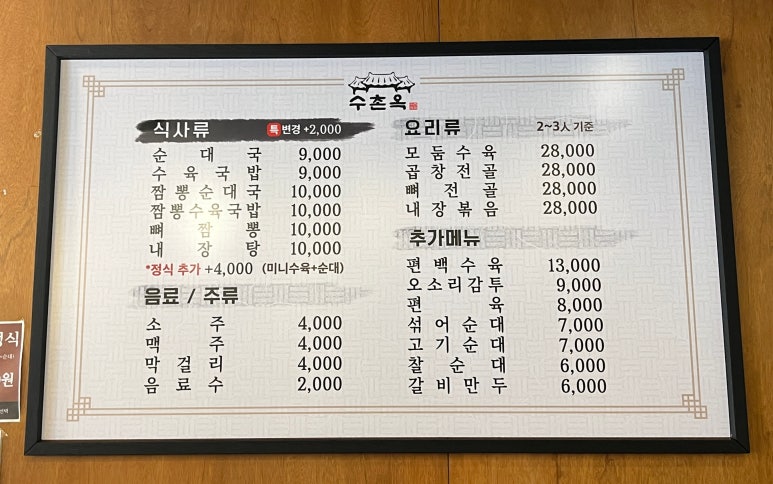 수촌옥
식사류 특 변경 +2,000
순대국 9,000
수육국밥 9,000
짬뽕순대국 10,000
짬뽕수육국밥 10,000
뼈짬뽕 10,000
내장탕 10,000
*정식 추가 +4,000 (미니수육+순대)
음료 / 주류
소주 4,000
맥주 4,000
막걸리 4,000
음료수 2,000
요리류 2~3人 기준
모둠수육 28,000
곱창전골 28,000
뼈전골 28,000
내장볶음 28,000
추가메뉴
편백수육 13,000
오소리감투 9,000
편육 8,000
섞어순대 7,000
고기순대 7,000
찰순대 6,000
갈비만두 6,000
정식
원